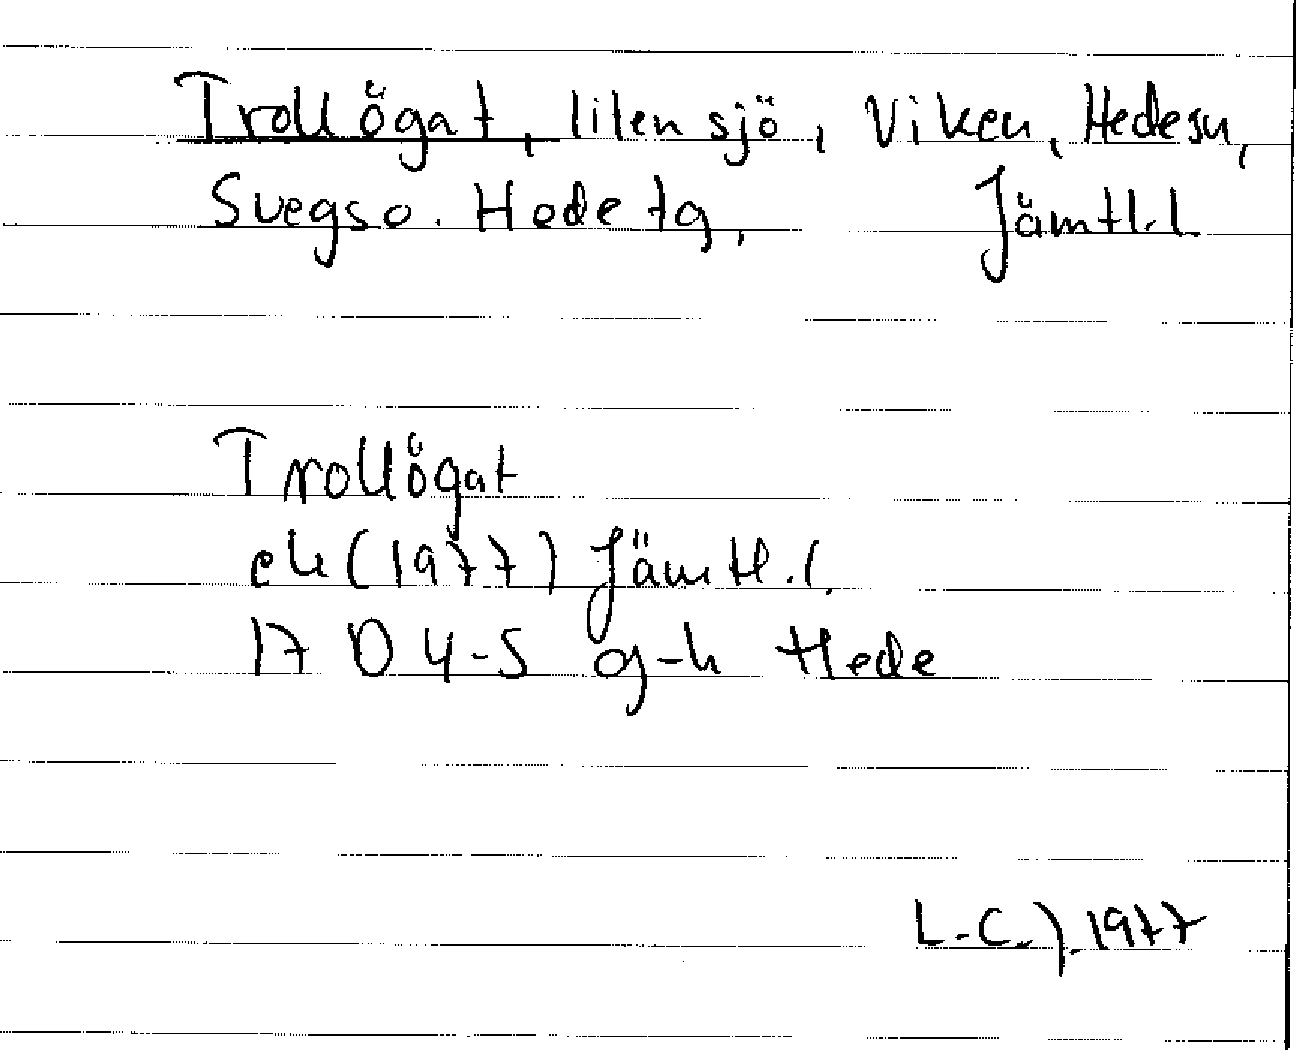 Trollögat, liten sjö, Viken, Hede sn,
Svegs o. Hede tg, Jämtl.l
Trollögat
ek (1977) Jämtl.l.
17 D 4-5 g-h Hede
L-C.J. 1977